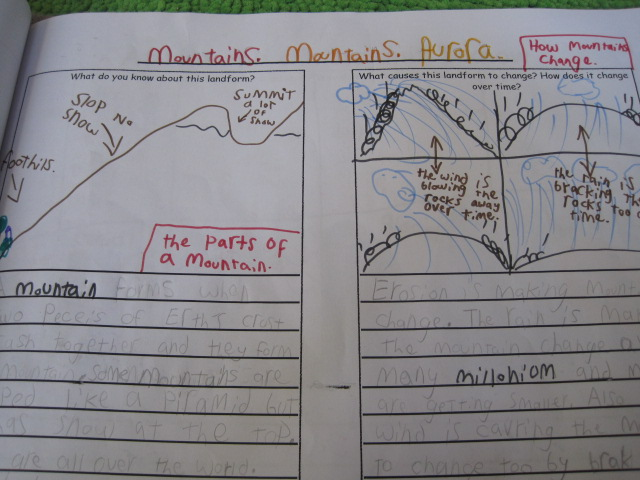 Mountains. Mountains. Aurora.
How Mountains
Change.
What do you know about this landform?
Slop No
Snow
Summit
a lot
of
snow
foothills.
the parts of
a Mountain.
mountain forms when
Peceis of ErthT crust
together and they form
Some Mountains are
Like a Piramid but
snow at the top.
are all over the world.
What causes this landform to change? How does it change
over time?
the wind is
blowing the
rocks away
over time.
the rain is
bracking the
rocks too
time.
Erosion is making
change. The rain is
the mountain change
many millohiom and
are getting smaller. Also
wind is causing the
to change too by